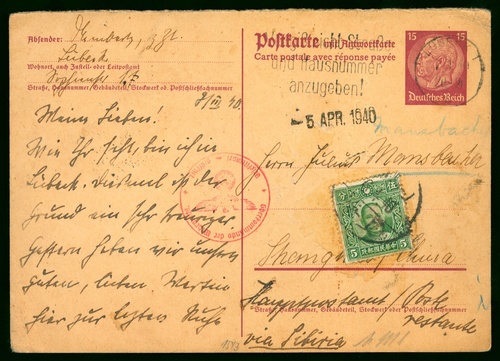 Absender: Meinberg, zZt.
Lübeck
Wohnort, auch Zustell- oder Leitpostamt
Straße, Hausnummer, Gebäudeteil, Stockwerk od. Postschließfachnummer
Postkarte mit Antwortkarte
Carte postale avec réponse payée
und Hausnummer
anzugeben!
- 5. APR. 1940
15 15
Deutsches Reich
Meine Lieben!
Wie Ihr seht, bin ich in
Lübeck. Diesmal ist der
Grund ein sehr trauriger,
gestern haben wir unsern
guten, lieben
hier zur letzten Ruhe
Oberkommando der
Herrn Julius Mansbacher
5 5
Shanghai / China
Hauptpostamt / Poste
restante
Straße, Hausnummer, Gebäudeteil, Stockwerk oder Postschließfachnummer
via Sibiria